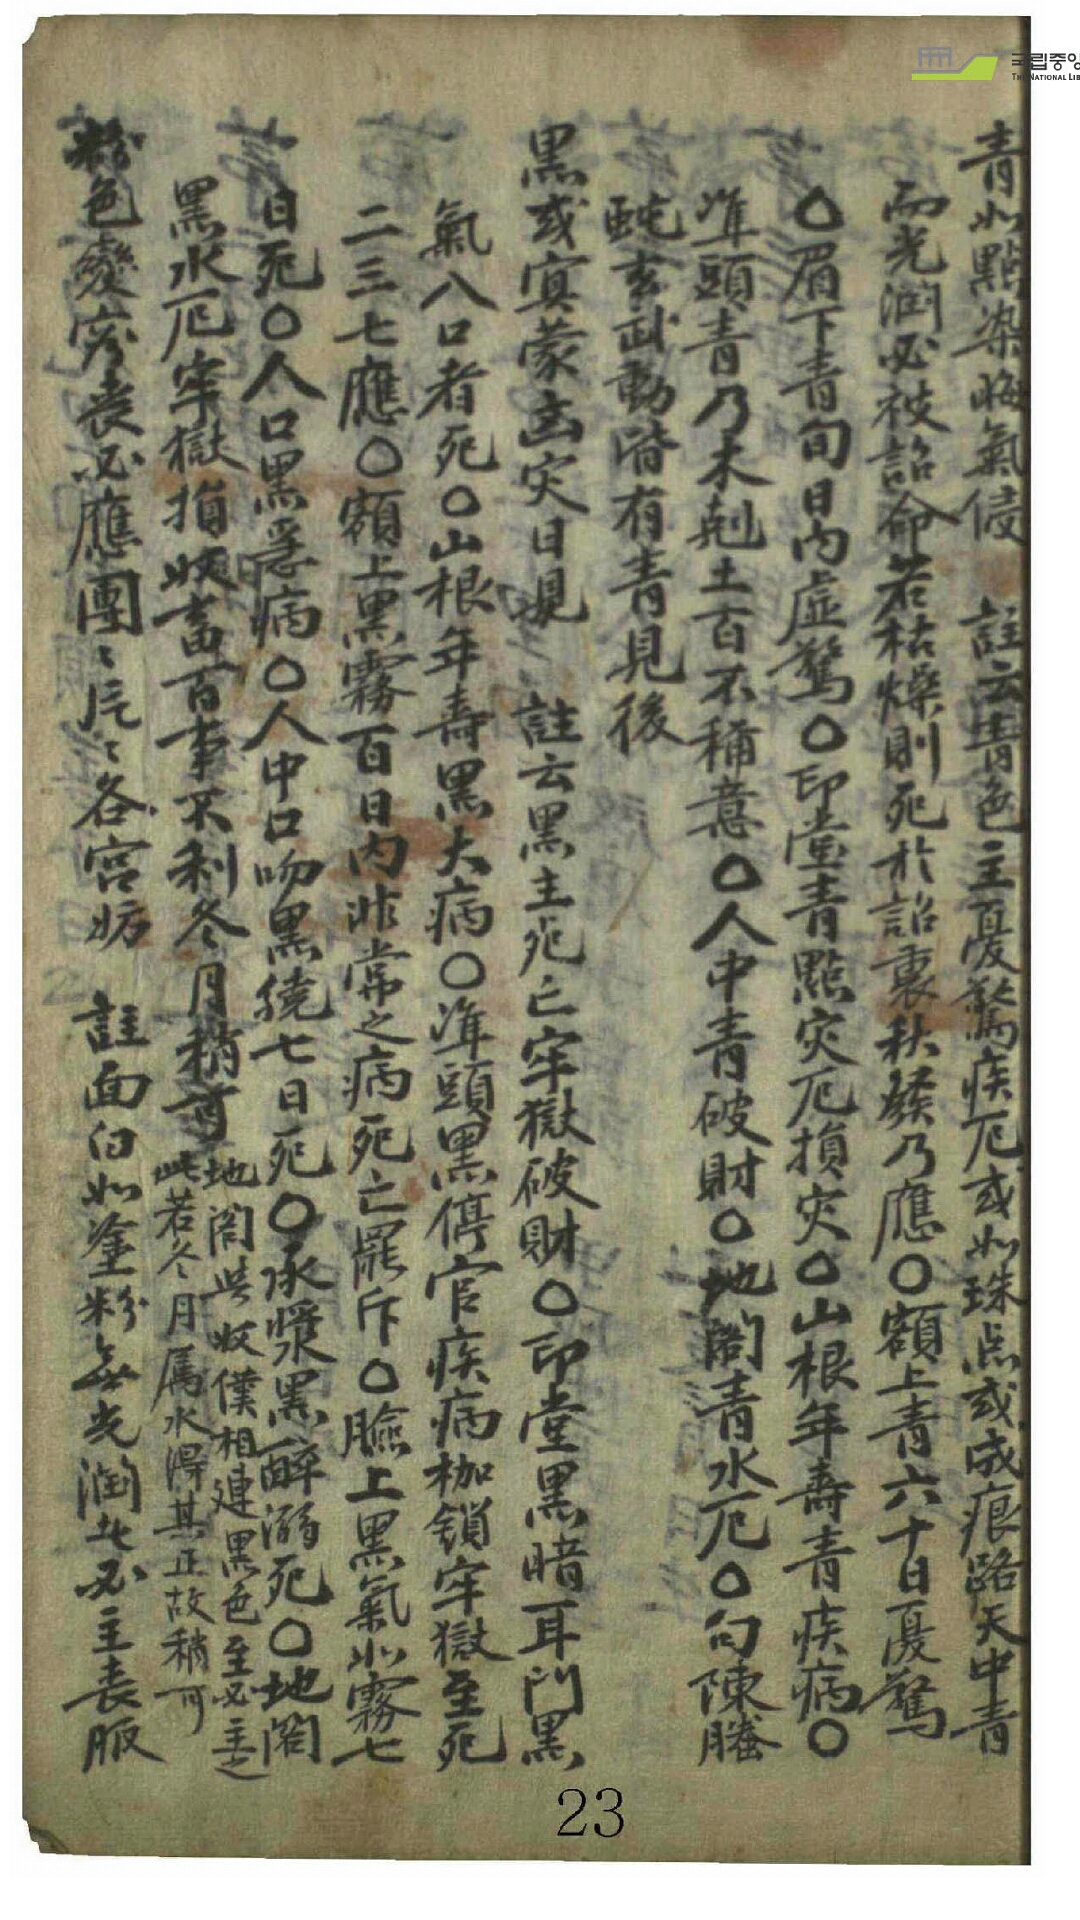 青如點染晦氣侵 註云青色主憂驚疾厄或如珠点或成痕路天中青
而光潤必被詔命若枯燥則死於詔裏秋發乃應○額上青六十日憂驚
○眉下青旬日內虛驚○印堂青點灾厄損灾○山根年壽青疾病○
準頭青乃木剋土百不稱意○人中青破財○地閣青水厄○句陳螣
虵玄武動皆有青見後
黑或㝠蒙凶灾日現 註云黑主死亡牢獄破財○印堂黑暗耳門黑
氣八口者死○山根年壽黑大病○準頭黑停官疾病枷鎖牢獄至死
二三七應○額上黑霧百日內非常之病死亡罷斥○臉上黑氣如霧七
日死○人口黑急病○人中口吻黑繞七日死○承漿黑醉溺死○地閣
黑水厄牢獄損妷畜百事不利冬月稍可
地閣与奴僕相連黑色至必主之
此若冬月屬水得其正故稍可
粉色變容喪必應團〻片〻各宮妨 註面白如塗粉無光潤者必主喪服
23
국립중앙
THE NATIONAL LIB